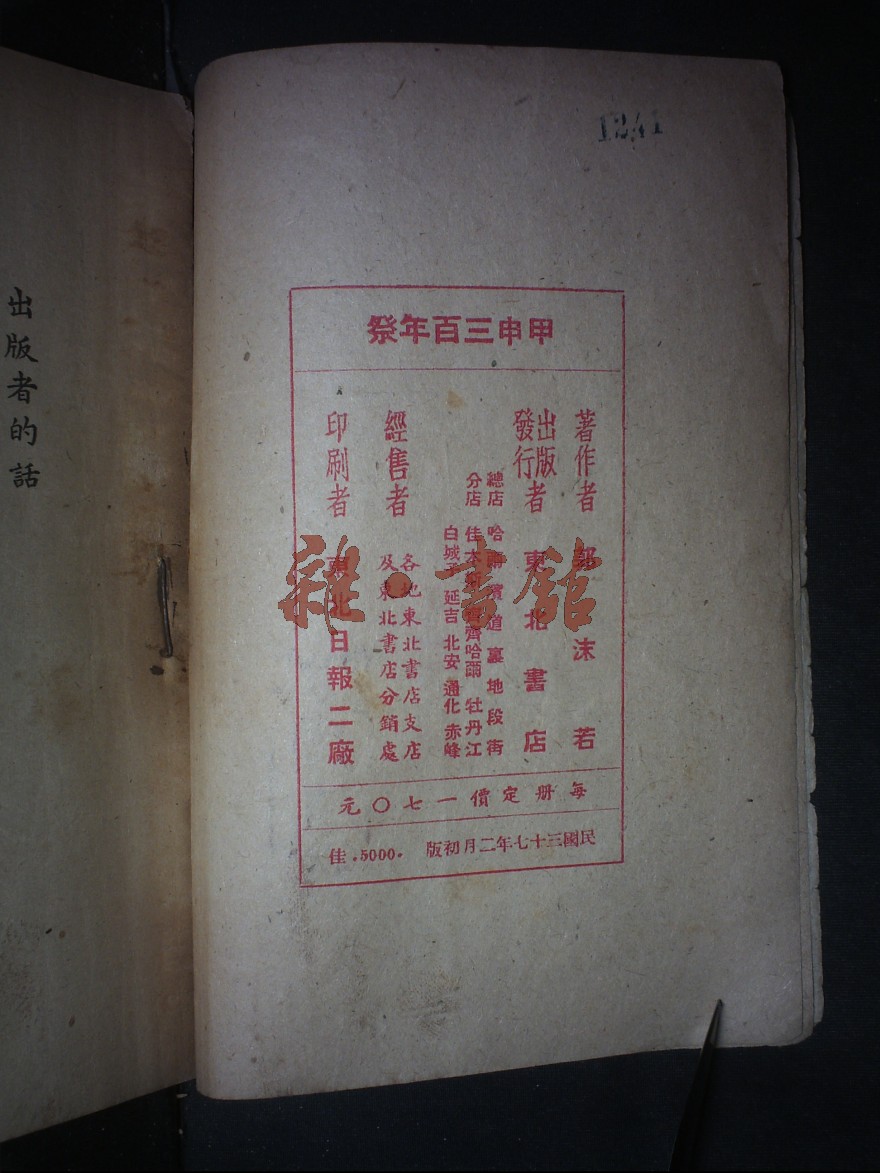 1241
甲申三百年祭
著作者 郭沫若
出版
發行者 東北書店
總店 哈爾濱道裏地段街
分店 佳木斯 齊齊哈爾 牡丹江
白城子 延吉 北安 通化 赤峰
經售者 各地東北書店支店
及東北書店分銷處
印刷者 東北日報二廠
每册定價一七〇元
民國三十七年二月初版 .5000. 佳
出版者的話
雜·書館